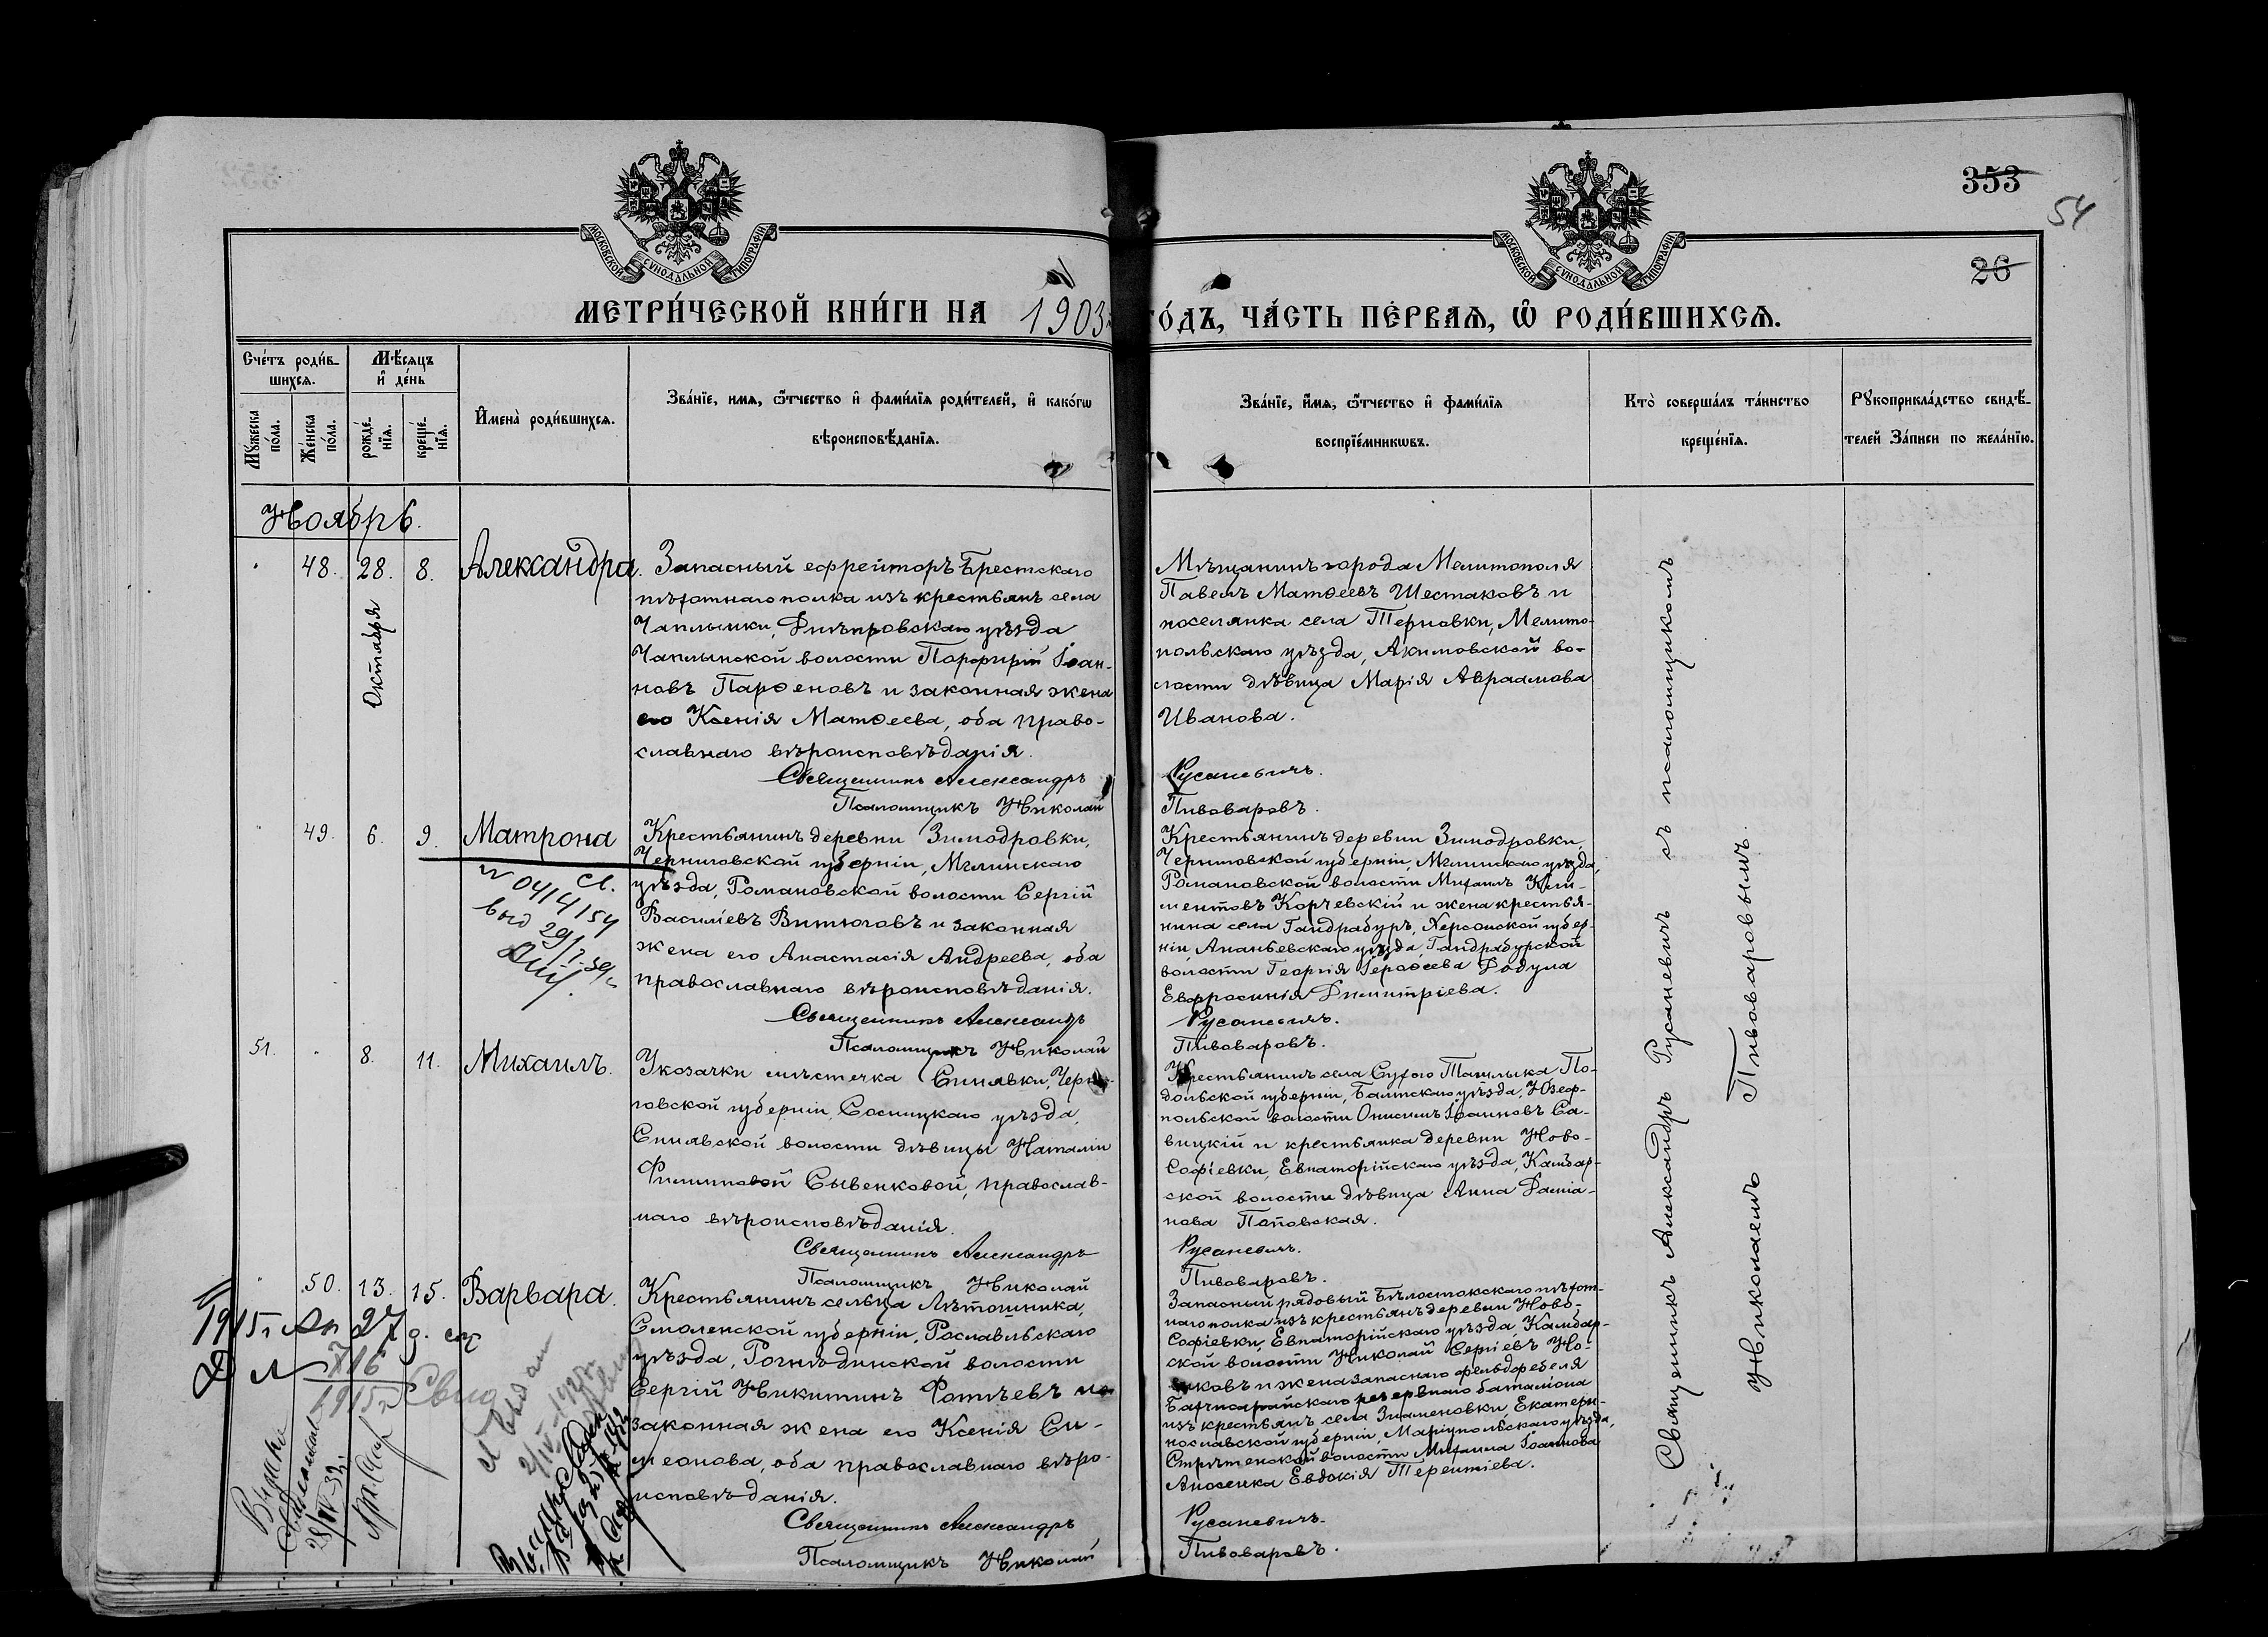 353
54
26
МОСКОВСКОЙ СѴНОДАЛЬНОЙ ТИПОГРАФІИ
МОСКОВСКОЙ СѴНОДАЛЬНОЙ ТИПОГРАФІИ
МЕТРИ́ЧЕСКОЙ КНИ́ГИ НА 1903 ГО́ДЪ, ЧА́СТЬ ПЕ́РВАѦ, Ѡ҆ РОДИ́ВШИХСѦ.
Сче́тъ роди́в-
шихсѧ.
Мѣ́сѧцъ
и҆ де́нь
Мꙋ́жеска
по́ла.
Же́нска
по́ла.
рожде́-
нїѧ.
креще́-
нїѧ.
И҆мена̀ роди́вшихсѧ.
Зва́нїе, имѧ, ѻ҆́тчество и҆ фами́лїѧ роди́телей, и҆ како́гѡ
вѣроисповѣ́данїѧ.
Зва́нїе, и҆́мѧ, ѻ҆́тчество и҆ фами́лїѧ
воспрїе́мникѡвъ.
Кто̀ соверша́лъ та́инство
креще́нїѧ.
Рꙋкоприкла́дство свидѣ́-
телей За́писи по жела́нїю.
Ноябрь.
48. 28. 8. Александра.
Октября
Запасный ефрейторъ Брестскаго
пѣхотнаго полка изъ крестьянъ села
Чаплынки, Днѣпровскаго уѣзда
Чаплынской волости Порфирій Іоан-
новъ Парѳеновъ и законная жена
его Ксенія Матѳеева, оба право-
славнаго вѣроисповѣданія.
Священникъ Александръ
Псаломщикъ Николай
Мѣщанинъ города Мелитополя
Павелъ Матѳеевъ Шестаковъ и
поселянка села Терновки, Мелито-
польскаго уѣзда, Акимовской во-
лости дѣвица Марія Авраамова
Иванова.
Русаневичъ.
Пивоваровъ.
49. 6. 9. Матрона
Крестьянинъ деревни Зимодровки,
Черниговской губерніи, Мглинскаго
уѣзда, Романовской волости Сергій
Василіевъ Витюговъ и законная
жена его Анастасія Андреева, оба
православнаго вѣроисповѣданія.
Священникъ Александръ
Псаломщикъ Николай
Крестьянинъ деревни Зимодровки,
Черниговской губерніи, Мглинскаго уѣзда,
Романовской волости Михаилъ Кли-
ментовъ Корчевскій и жена крестья-
нина села Гандрабуръ, Херсонской губер-
ніи, Ананьевскаго уѣзда, Гандрабурской
волости Георгія Іероѳеева Фодула
Евфросинія Димитріева.
Русаневичъ.
Пивоваровъ.
51. 8. 11. Михаилъ.
У козачки мѣстечка Синявки, Черни-
говской губерніи, Сосницкаго уѣзда,
Синявской волости дѣвицы Наталіи
Филипповой Сывенковой, православ-
наго вѣроисповѣданія.
Священникъ Александръ
Псаломщикъ Николай
Крестьянинъ села Сухого Ташлыка По-
дольской губерніи, Балтскаго уѣзда, Юзеф-
польской волости Онисимъ Іоанновъ Са-
вицкій и крестьянка деревни Ново-
Софіевки, Евпаторійскаго уѣзда, Камбар-
ской волости дѣвица Анна Даміа-
нова Поповская.
Русаневичъ.
Пивоваровъ.
50. 13. 15. Варвара.
Крестьянинъ сельца Лѣтошника,
Смоленской губерніи, Рославльскаго
уѣзда, Рогнѣдинской волости
Сергій Никитинъ и
законная жена его Ксенія Си-
меонова, оба православнаго вѣро-
исповѣданія.
Священникъ Александръ
Псаломщикъ Николай
Запасный рядовый Бѣлостокскаго пѣхот-
наго полка изъ крестьянъ деревни Ново-
Софіевки, Евпаторійскаго уѣзда, Камбар-
ской волости Николай Сергіевъ Но-
виковъ и жена запаснаго фельдфебеля
резервнаго баталіона
изъ крестьянъ села Знаменовки, Екатери-
нославской губерніи, Маріупольскаго уѣзда,
Стрѣтенской волости Михаила Іоаннова
Евдокія Терентіева.
Русаневичъ.
Пивоваровъ.
Священникъ Александръ Русаневичъ съ псаломщикомъ
Николаемъ Пивоваровымъ.